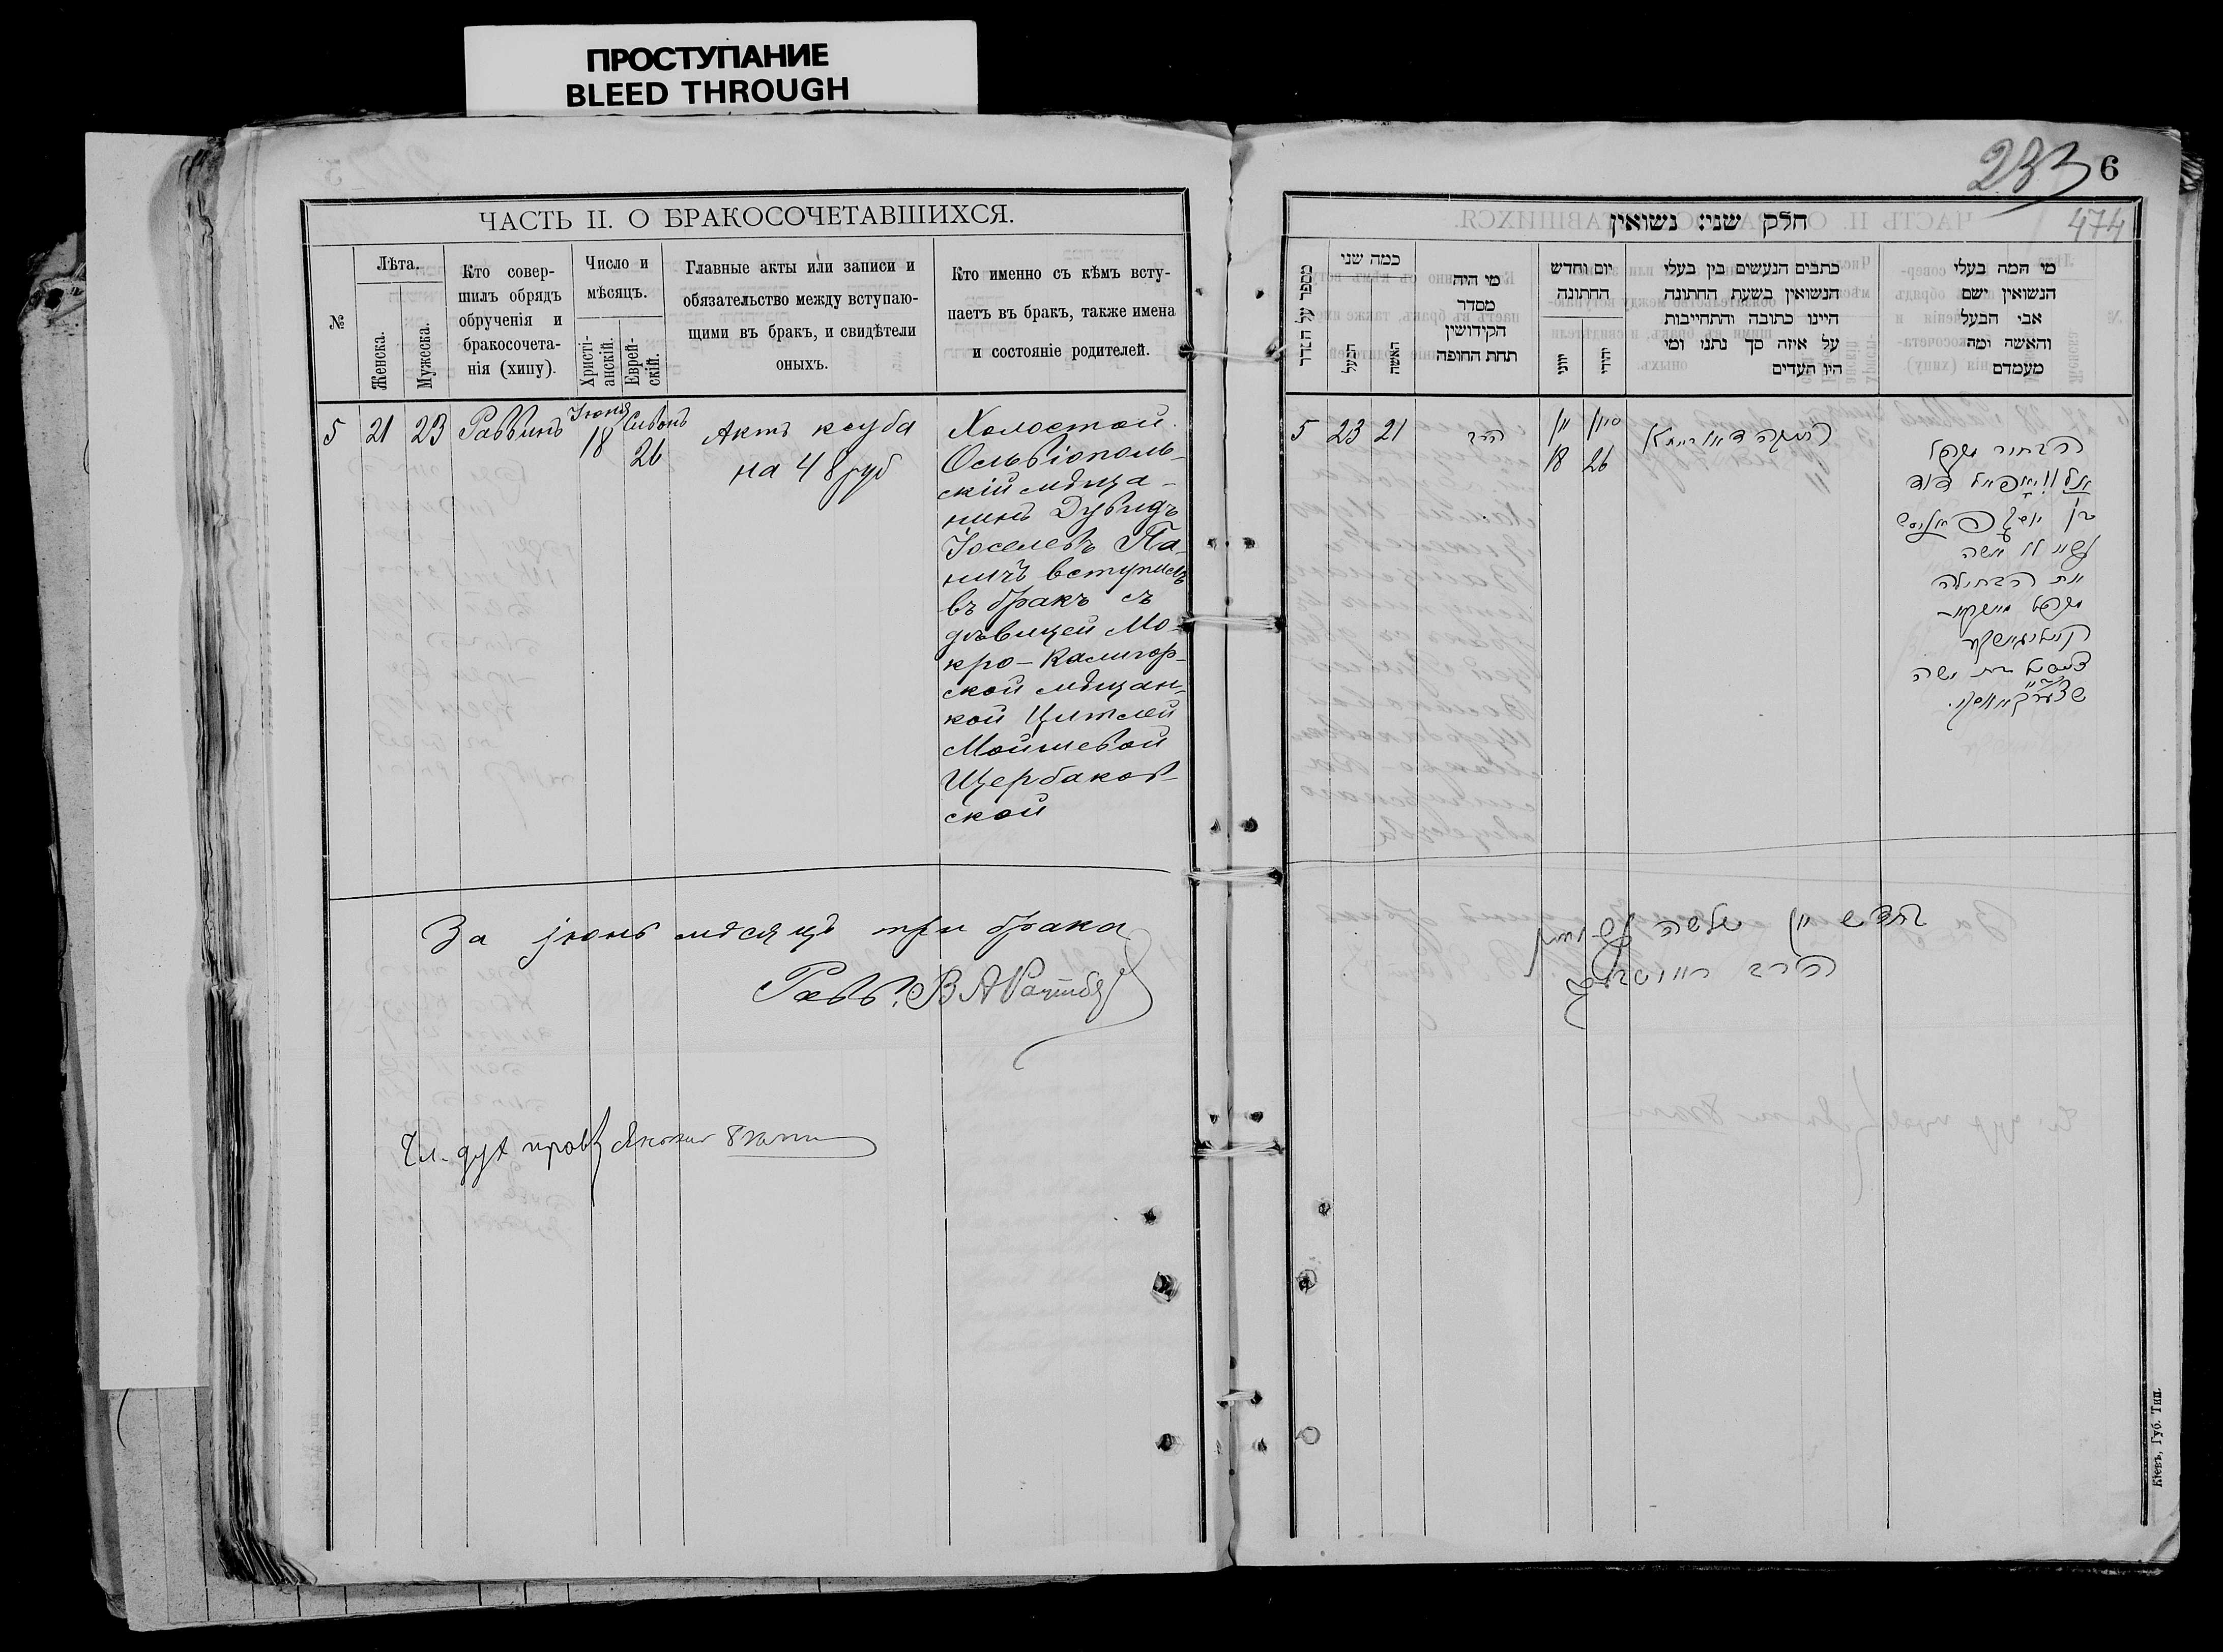 ПРОСТУПАНИЕ
BLEED THROUGH
ЧАСТЬ II. О БРАКОСОЧЕТАВШИХСЯ.
№
Лѣта.
Женска.
Мужеска.
Кто совер-
шилъ обрядъ
обрученія и
бракосочета-
нія (хипу).
Число и
мѣсяцъ.
Христі-
анскій.
Еврей-
скій.
Главные акты или записи и
обязательство между вступаю-
щими въ бракъ, и свидѣтели
оныхъ.
Кто именно съ кѣмъ всту-
паетъ въ бракъ, также имена
и состояніе родителей.
5
21
23
Раввинъ
Іюня
18
Сивонъ
26
Актъ ксуба
на 48 руб
Холостой
Ольвіополь-
скій мѣща-
нинъ Дувидъ
Іоселевъ Па-
ничъ вступилъ
въ бракъ съ
дѣвицей Мо-
кро-Калигор-
ской мѣщан-
кой Цитлей
Мойшевой
Щербаков-
ской
За іюнь мѣсяцъ три брака
Равв.
Чл. дух прав
233
6
474
חלק שני: נשואין
מספר על הסדר
כמה שני
הבעל
האשה
מי היה
מסדר
הקידושין
תחת החופה
יום וחדש
החתונה
יוני
יהודי
כתבים הנעשים בין בעלי
הנשואין בשעת החתונה
היינו כתובה והתחייבות
על איזה סך נתנו ומי
היו העדים
מי המה בעלי
הנשואין ושם
אבי הבעל
והאשה ומה
מעמדם
5
23
21
הרב
יון
18
סיון
26
הבחור
דוד
בן
את הבתולה
בת משה
בחדש יון שלשה
הרב
Кіевъ, Губ. Тип.